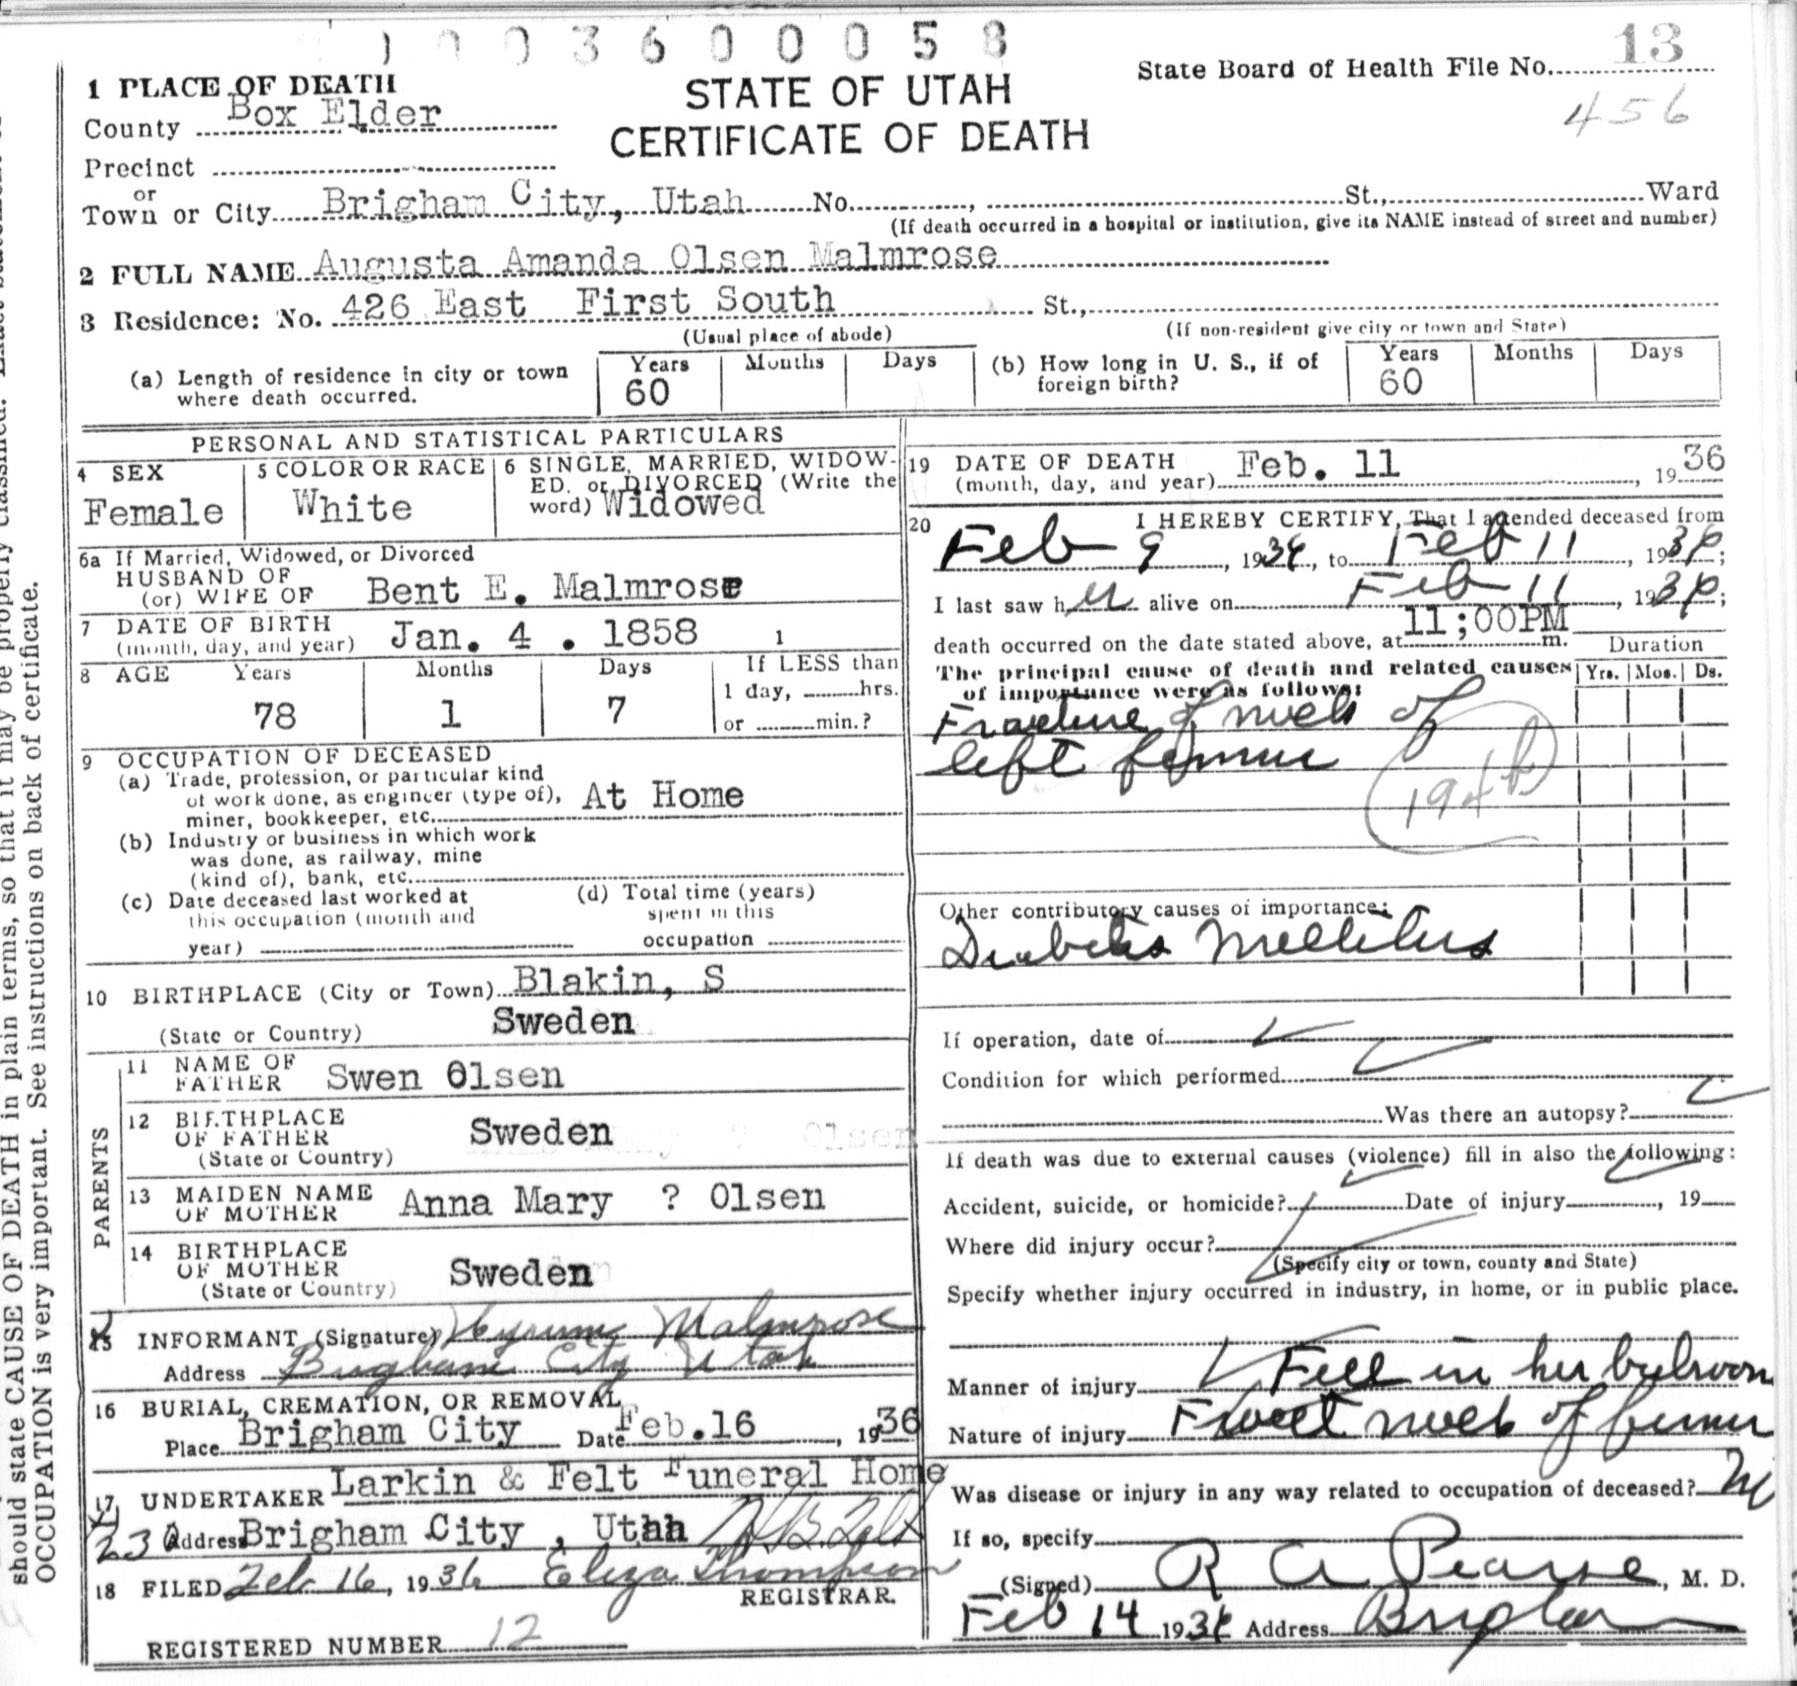 1003600058
State Board of Health File No. 13
456
STATE OF UTAH
CERTIFICATE OF DEATH
1 PLACE OF DEATH
County Box Elder
Precinct
or
Town or City Brigham City, Utah No. , St., Ward
(If death occurred in a hospital or institution, give its NAME instead of street and number)
2 FULL NAME Augusta Amanda Olsen Malmrose
3 Residence: No. 426 East First South St.,
(Usual place of abode) (If non-resident give city or town and State)
(a) Length of residence in city or town where death occurred. Years 60 Months Days
(b) How long in U. S., if of foreign birth? Years 60 Months Days
PERSONAL AND STATISTICAL PARTICULARS
4 SEX Female
5 COLOR OR RACE White
6 SINGLE, MARRIED, WIDOW-
ED, or DIVORCED (Write the
word) Widowed
6a If Married, Widowed, or Divorced
HUSBAND OF
(or) WIFE OF Bent E. Malmrose
7 DATE OF BIRTH
(month, day, and year) Jan. 4 . 1858 1
8 AGE Years Months Days If LESS than
1 day, hrs.
78 1 7 or min.?
9 OCCUPATION OF DECEASED
(a) Trade, profession, or particular kind
of work done, as engineer (type of), At Home
miner, bookkeeper, etc.
(b) Industry or business in which work
was done, as railway, mine
(kind of), bank, etc.
(c) Date deceased last worked at
this occupation (month and
year)
(d) Total time (years)
spent in this
occupation
10 BIRTHPLACE (City or Town) Blakin, S
(State or Country) Sweden
PARENTS
11 NAME OF
FATHER Swen Olsen
12 BIRTHPLACE
OF FATHER Sweden
(State or Country)
13 MAIDEN NAME
OF MOTHER Anna Mary ? Olsen
14 BIRTHPLACE
OF MOTHER Sweden
(State or Country)
15 INFORMANT (Signature) Hyrum Malmrose
Address Brigham City Utah
16 BURIAL, CREMATION, OR REMOVAL
Place Brigham City Date Feb.16 , 1936
17 UNDERTAKER Larkin & Felt Funeral Home
Address Brigham City , Utah
18 FILED Feb 16, 1936 Eliza Thompson
REGISTRAR.
REGISTERED NUMBER 12
19 DATE OF DEATH
(month, day, and year) Feb. 11 , 1936
20 I HEREBY CERTIFY, That I attended deceased from
Feb 9 , 1936, to Feb 11 , 1936;
I last saw her alive on Feb 11 , 1936;
death occurred on the date stated above, at 11;00PM m.
The principal cause of death and related causes
of importance were as follows:
Duration
Yrs. Mos. Ds.
Fracture of neck of
left femur
Other contributory causes of importance:
Diabetis Mellitus
If operation, date of
Condition for which performed
Was there an autopsy?
If death was due to external causes (violence) fill in also the following:
Accident, suicide, or homicide? Date of injury , 19
Where did injury occur?
(Specify city or town, county and State)
Specify whether injury occurred in industry, in home, or in public place.
Manner of injury Fell in her bedroom
Nature of injury Fract neck of femur
Was disease or injury in any way related to occupation of deceased? No
If so, specify
(Signed) R A Pearse , M. D.
Feb 14 1936 Address Brigham
should state CAUSE OF DEATH in plain terms, so that it may be properly classified.
OCCUPATION is very important. See instructions on back of certificate.